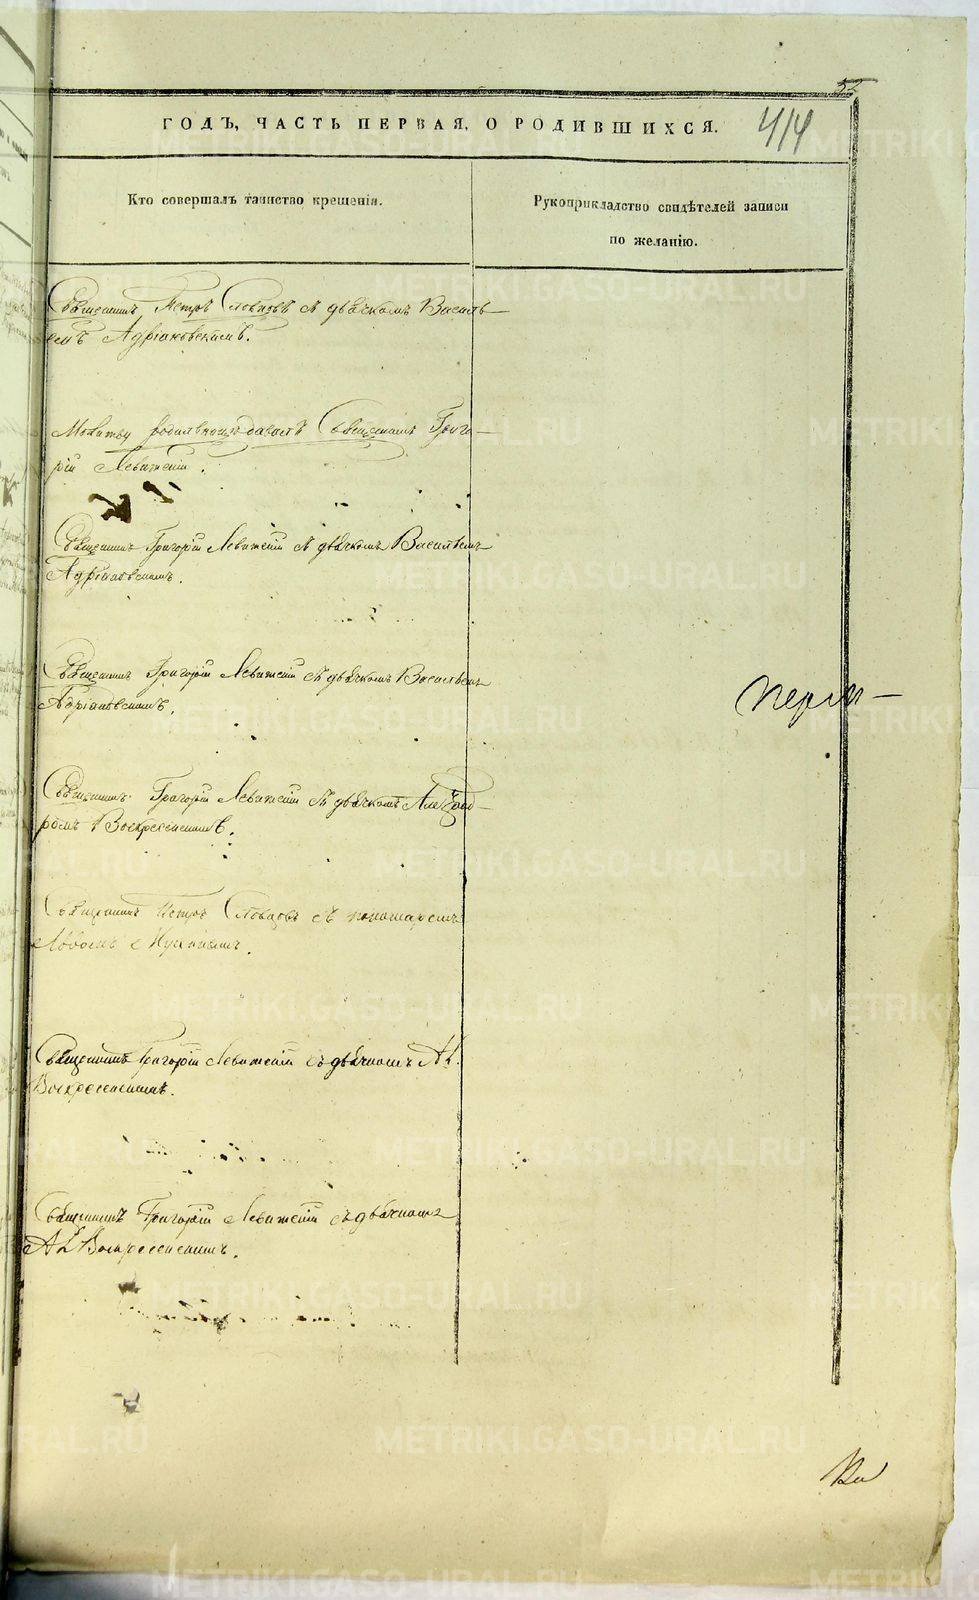 52
ГОДЪ, ЧАСТЬ ПЕРВАЯ, О РОДИВШИХСЯ.
414
Кто совершалъ таинство крещенія.
Рукоприкладство свидѣтелей записи
по желанію.
Священникъ Петръ Словцовъ съ дьячкомъ Василь-
емъ Адріановскимъ.
Молитву родильницѣ давалъ Священникъ Григо-
рій Левитскій.
Священникъ Григорій Левитскій съ дьячкомъ Васильемъ
Адріановскимъ.
Священникъ Григорій Левитскій съ дьячкомъ Васильемъ
Адріановскимъ.
Священникъ Григорій Левитскій съ дьячкомъ Александ-
ромъ Воскресенскимъ.
Священникъ Петръ Словцовъ съ пономаремъ
Священникъ Григорій Левитскій съ дьячкомъ Ал.
Воскресенскимъ.
Священникъ Григорій Левитскій съ дьячкомъ
Ал. Воскресенскимъ.
METRIKI.GASO-URAL.RU